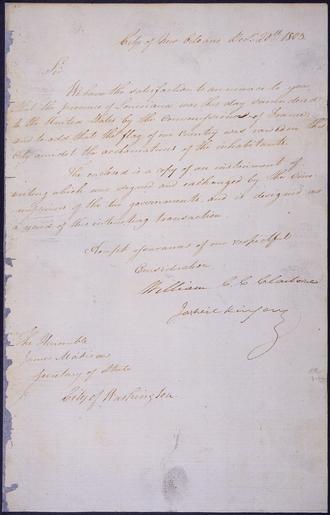 City of New Orleans Decr 20th 1803
Sir
We have the satisfaction to announce to you
that the province of Louisiana was this day surrendered
to the United States by the Commissioner of France,
and to add that the flag of our Country was raised in this
City amidst the acclamations of the inhabitants.
The enclosed is a copy of an instrument of
writing which was signed and exchanged by the Com-
missioners of the two governments, and is designed as
a record of this interesting transaction.
Accept assurances of our respectful
Consideration
William C. C. Claiborne
The Honorable
James Madison
Secretary of State
City of Washington